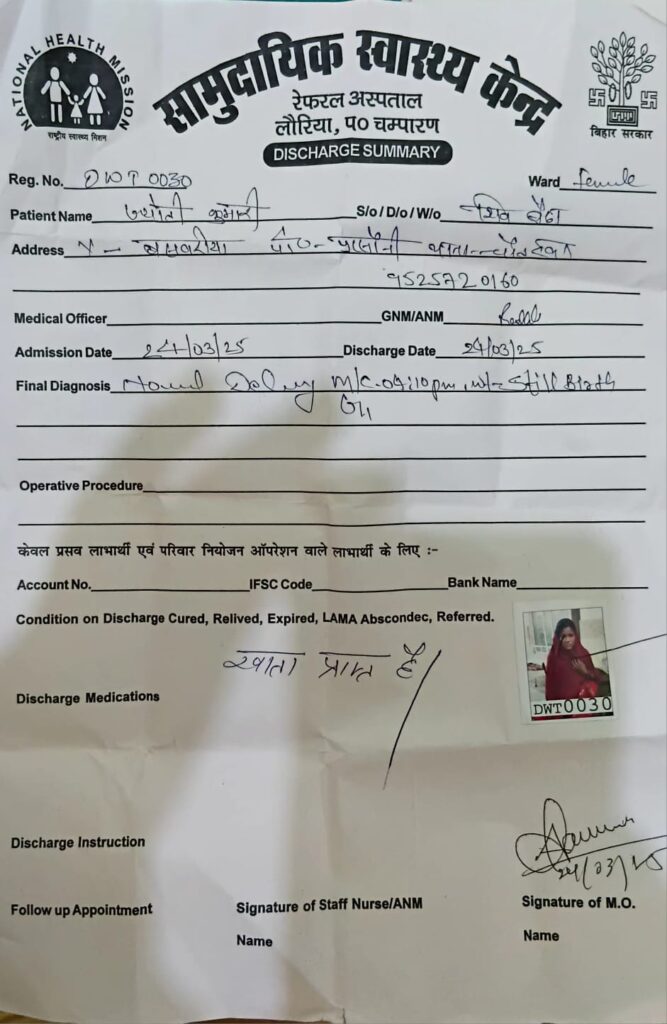 NATIONAL HEALTH MISSION
राष्ट्रीय स्वास्थ्य मिशन
सामुदायिक स्वास्थ्य केन्द्र
बिहार सरकार
रेफरल अस्पताल
लौरिया, प० चम्पारण
DISCHARGE SUMMARY
Reg. No. DWT 0030 Ward Female
Patient Name ज्योती कुमारी S/o / D/o / W/o
Address
9525720160
Medical Officer GNM/ANM
Admission Date 24/03/25 Discharge Date 24/03/25
Final Diagnosis M/C 04:10pm Still Birth
Operative Procedure
केवल प्रसव लाभार्थी एवं परिवार नियोजन ऑपरेशन वाले लाभार्थी के लिए :-
Account No. IFSC Code Bank Name
Condition on Discharge Cured, Relived, Expired, LAMA Abscondec, Referred.
खाता प्राप्त है
Discharge Medications
DWT0030
Discharge Instruction
24/03/25
Follow up Appointment Signature of Staff Nurse/ANM Signature of M.O.
Name Name